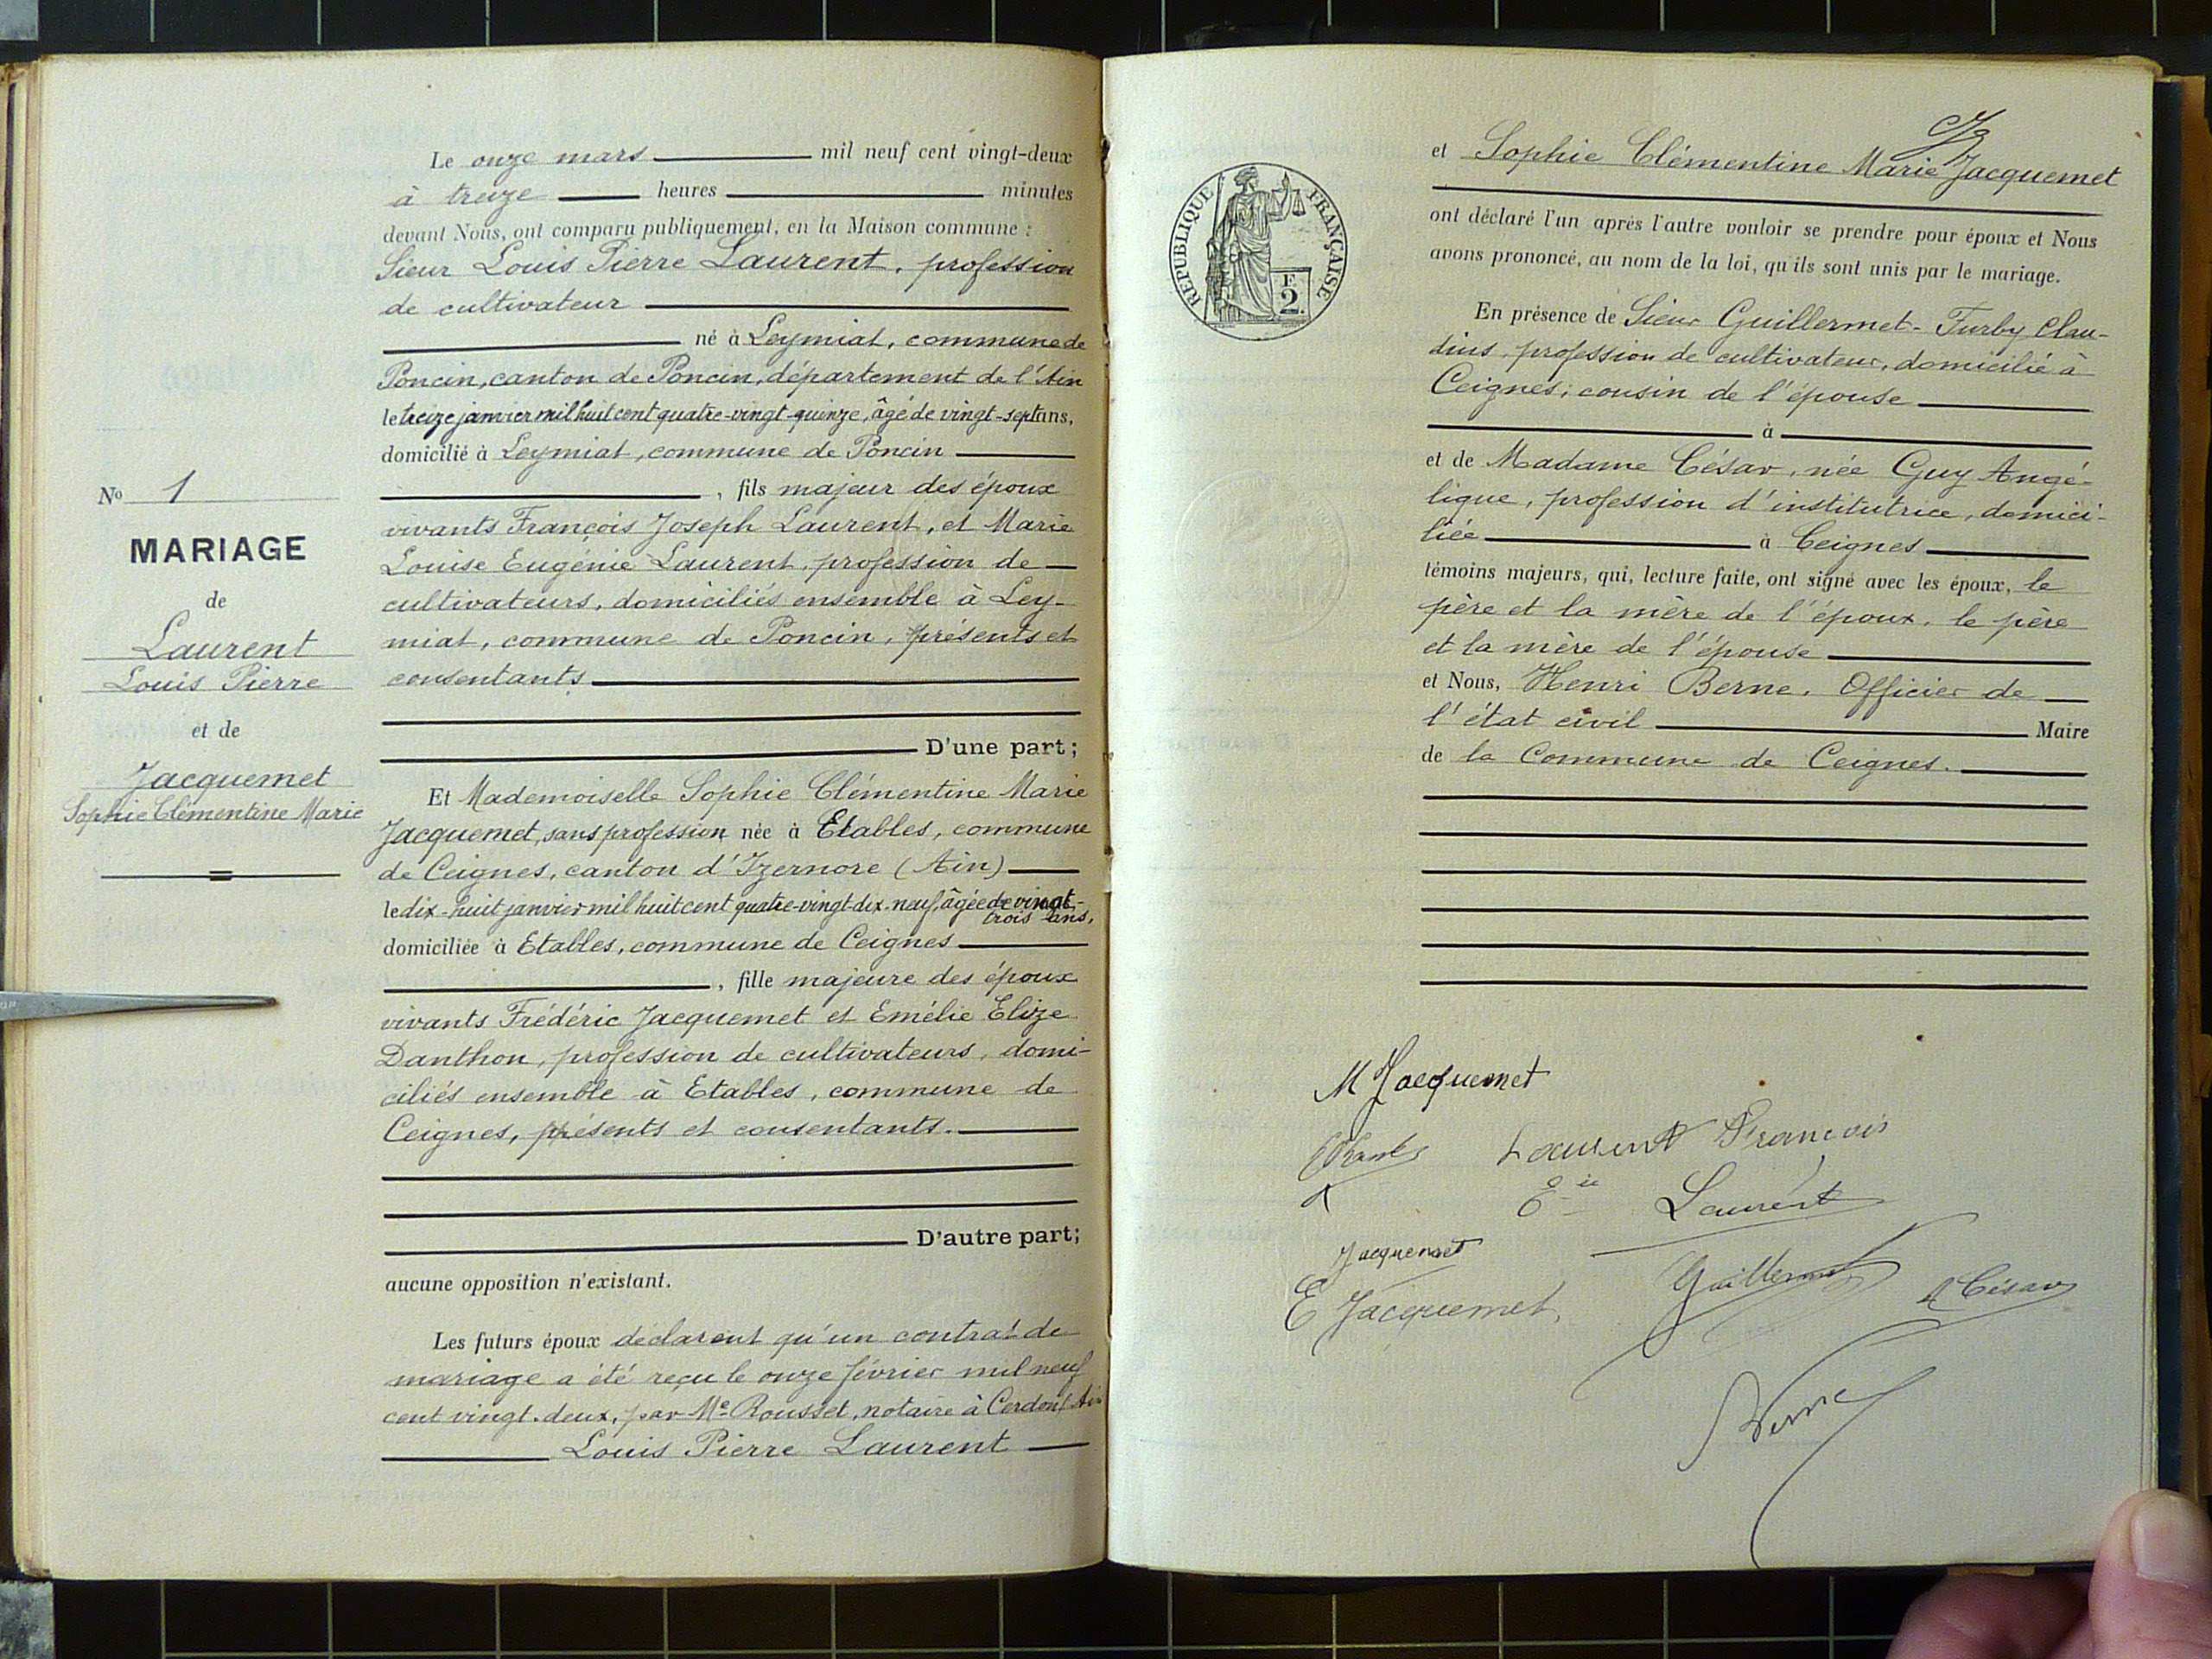 Le onze mars mil neuf cent vingt-deux
à treize heures minutes
devant Nous, ont comparu publiquement, en la Maison commune :
Sieur Louis Pierre Laurent, profession
de cultivateur
né à Leymiat, commune de
Poncin, canton de Poncin, département de l'Ain
le treize janvier mil huit cent quatre-vingt-quinze, âgé de vingt-sept ans,
domicilié à Leymiat, commune de Poncin
, fils majeur des époux
vivants François Joseph Laurent, et Marie
Louise Eugénie Laurent, profession de
cultivateurs, domiciliés ensemble à Ley-
miat, commune de Poncin, présents et
consentants
D'une part;
Et Mademoiselle Sophie Clémentine Marie
Jacquemet, sans profession née à Etables, commune
de Ceignes, canton d'Izernore (Ain)
le dix-huit janvier mil huit cent quatre-vingt-dix-neuf, âgée de vingt-
trois ans,
domiciliée à Etables, commune de Ceignes
, fille majeure des époux
vivants Frédéric Jacquemet et Emélie Elize
Danthon, profession de cultivateurs, domi-
ciliés ensemble à Etables, commune de
Ceignes, présents et consentants.
D'autre part;
aucune opposition n'existant.
Les futurs époux déclarent qu'un contrat de
mariage a été reçu le onze février mil neuf
cent vingt-deux, par Me Rousset, notaire à Cerdon (Ain
Louis Pierre Laurent
No 1
MARIAGE
de
Laurent
Louis Pierre
et de
Jacquemet
Sophie Clémentine Marie
REPUBLIQUE FRANÇAISE
F
2
et Sophie Clémentine Marie Jacquemet
ont déclaré l'un après l'autre vouloir se prendre pour époux et Nous
avons prononcé, au nom de la loi, qu'ils sont unis par le mariage.
En présence de Sieur Guillermet-Furby Clau-
dius, profession de cultivateur, domicilié à
Ceignes, cousin de l'épouse
à
et de Madame César, née Guy Angé-
lique, profession d'institutrice, domici-
liée à Ceignes
témoins majeurs, qui, lecture faite, ont signé avec les époux, le
père et la mère de l'époux, le père
et la mère de l'épouse
et Nous, Henri Berne, Officier de
l'état civil Maire
de la Commune de Ceignes.
M Jacquemet
Laurent François
Eie Laurent
Jacquemet
E Jacquemet
Guillermet
A César
Berne